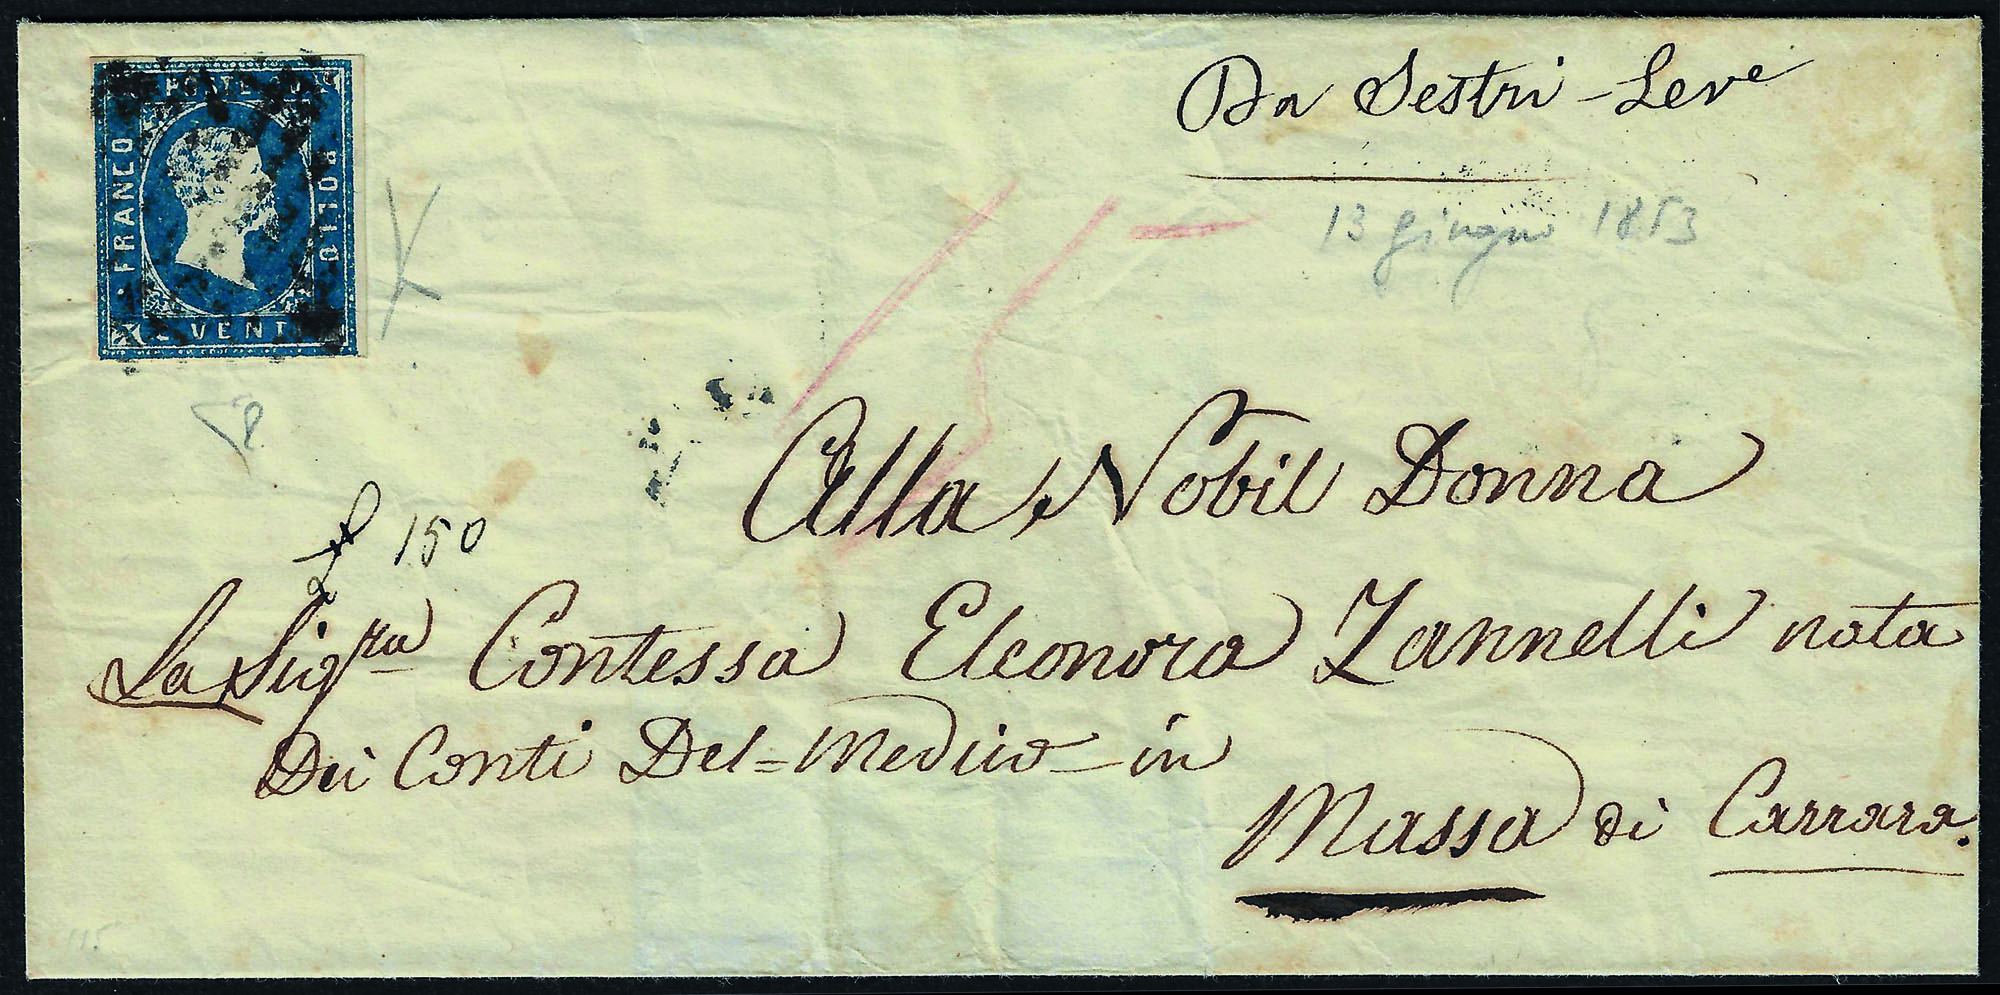 POSTE
FRANCO
BOLLO
C. VENTI
Da Sestri-Leve
13 giugno 1853
15-
L 150
Alla Nobil Donna
La Sigra Contessa Eleonora Zannelli nata
Dei Conti Del=Medico in
Massa di Carrara.
115